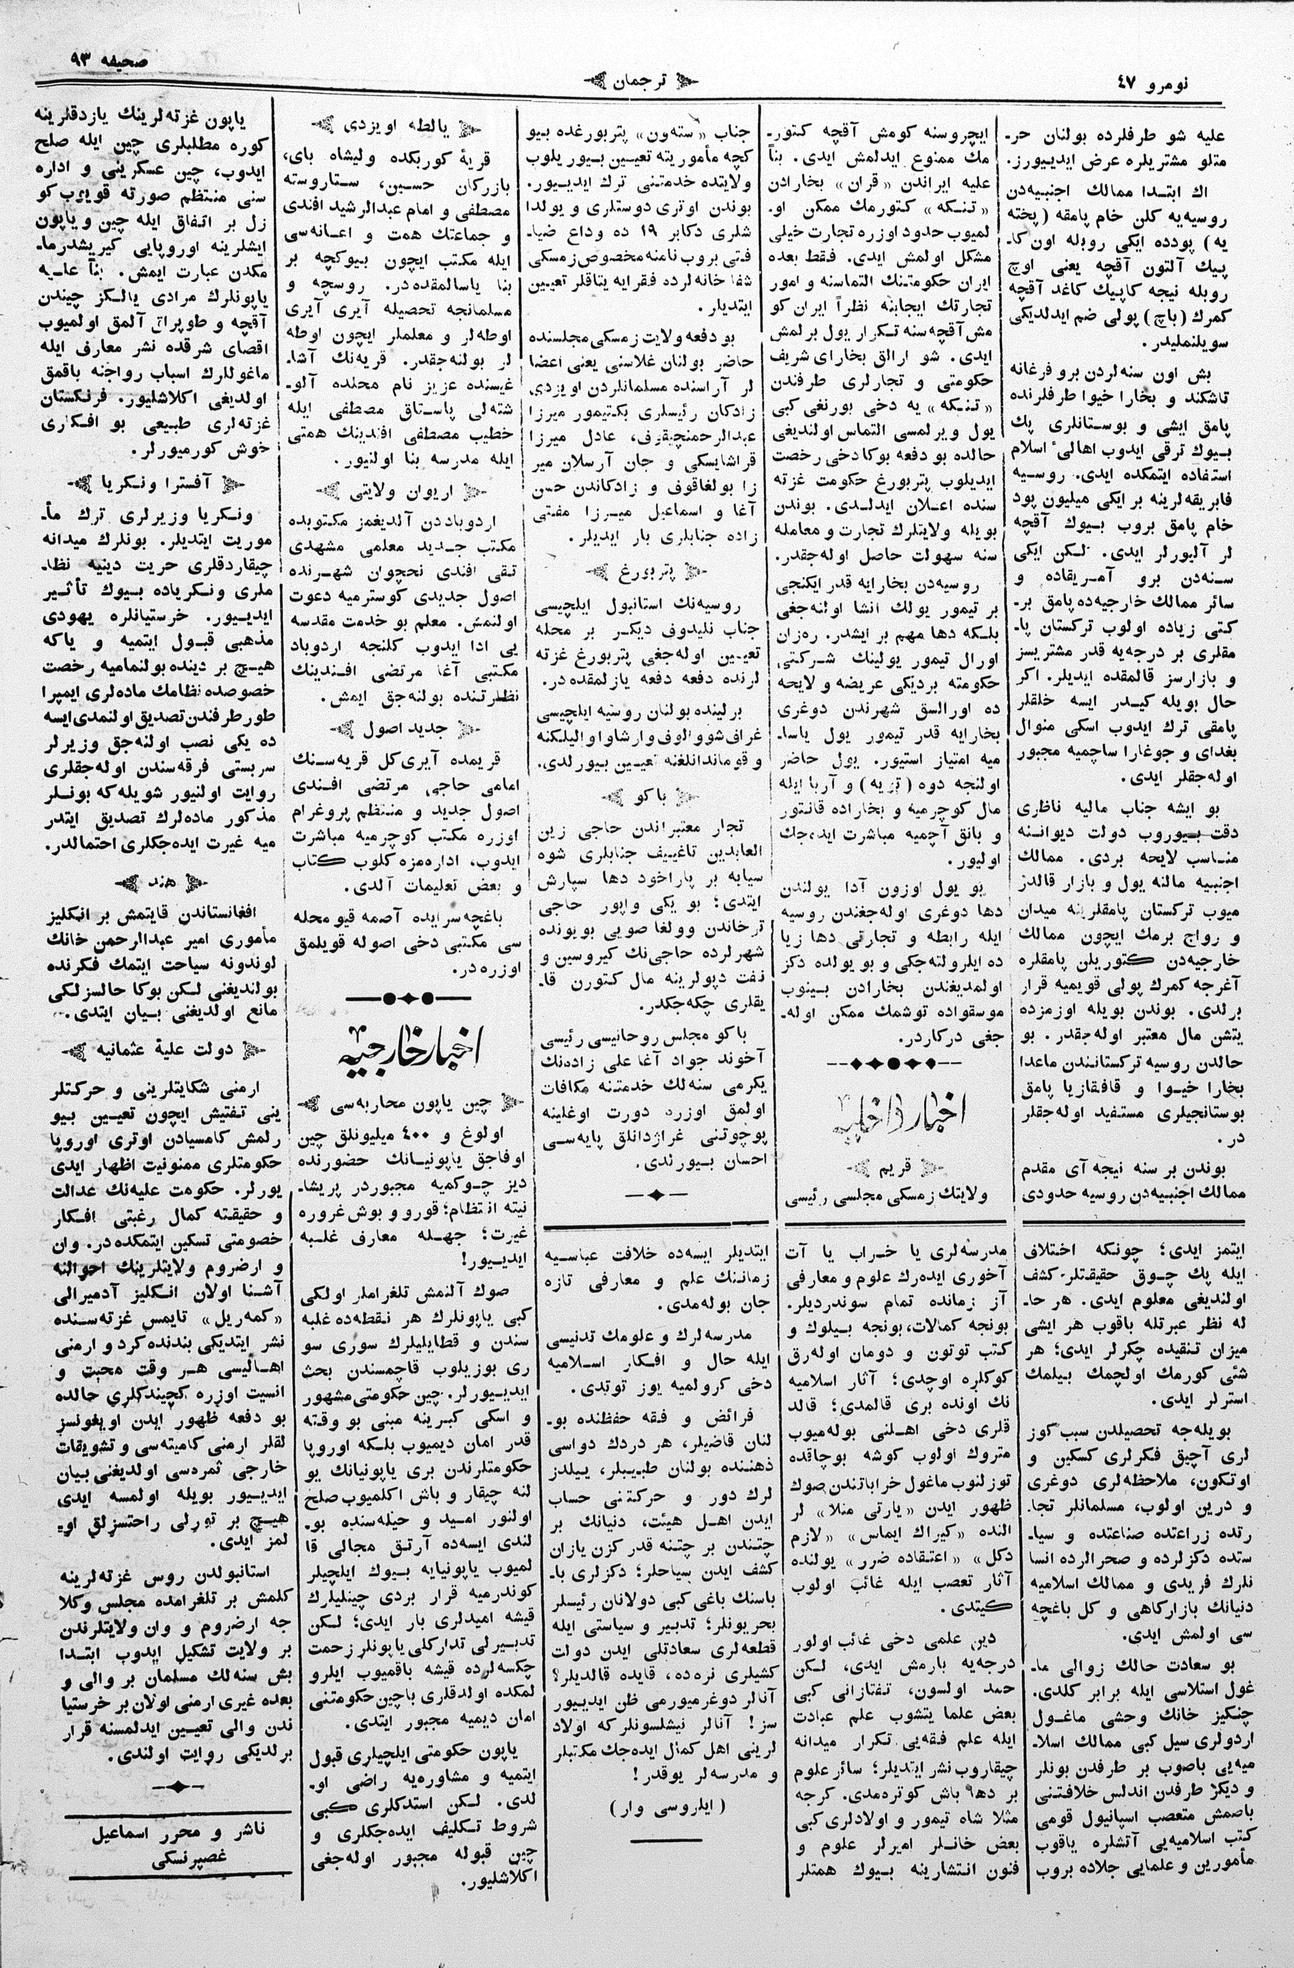 نومرو ٤٧
ترجمان
صحيفه ٩٣
عليه شو طرفلرده بولنان حر-
متلو مشتريلره عرض ايديـيورز.
اك ابتدا ممالك اجنبيه‌دن
روسيه‌يه كلن خام پامقه (پخته
يه) پودده ايكى روبله اون كا-
پيك آلتون آقچه يعنى اوچ
روبله نيجه كاپيك كاغد آقچه
كمرك (باج) پولى ضم ايدلديكى
سويلنمليدر.
بش اون سنه‌لردن برو فرغانه
تاشكند و بخارا خيوا طرفلرنده
پامق ايشى و بوستانلرى پك
بيوك ترقى ايدوب اهالىء اسلام
استفاده ايتمكده ايدى. روسيه
فابريقه‌لرينه بر ايكى ميليون پود
خام پامق بروب بيوك آقچه
لر آليورلر ايدى. لكن ايكى
سنه‌دن برو آمريقاده و
سائر ممالك خارجيه‌ده پامق بر-
كتى زياده اولوب تركستان پا-
مقلرى بر درجه‌يه قدر مشتريسز
و بازارسز قالمقده ايديلر. اكر
حال بويله كيدر ايسه خلقلر
پامقى ترك ايدوب اسكى منوال
بغداى و جوغارا ساچميه مجبور
اوله‌جقلر ايدى.
بو ايشه جناب ماليه ناظرى
دقت بيوروب دولت ديوانـنه
مناسب لايحه بردى. ممالك
اجنبيه مالنه يول و بازار قالدز
ميوب تركستان پامقلرينه ميدان
و رواج برمك ايچون ممالك
خارجيه‌دن كتوريلن پامقلره
آغرجه كمرك پولى قويميه قرار
برلدى. بوندن بويله اوزمزده
يتشن مال معتبر اوله‌جقدر. بو
حالدن روسيه تركستانـندن ماعدا
بخارا خيوا و قافقازيا پامق
بوستانجيلرى مستفيد اوله‌جقلر
در.
بوندن بر سنه نيجه آى مقدم
ممالك اجنبيه‌دن روسيه حدودى
ايچروسنه كومش آقچه كتور-
مك ممنوع ايدلمش ايدى. بنأ
عليه ايراندن «قران» بخارادن
«تنكه» كتورمك ممكن او-
لميوب حدود اوزره تجارت خيلى
مشكل اولمش ايدى. فقط بعده
ايران حكومتنك التماسنه و امور
تجارتك ايجابنه نظراً ايران كو
مش آقچه‌سنه تكرار يول برلمش
ايدى. شو ارالق بخاراى شريف
حكومتى و تجارلرى طرفندن
«تنكه» يه دخى بورنغى كبى
يول ويرلمسى التماس اولنديغى
حالده بو دفعه بوكا دخى رخصت
ايديلوب پتربورغ حكومت غزته
سنده اعلان ايدلدى. بوندن
بويله ولايتلرك تجارت و معامله
سنه سهولت حاصل اوله‌جقدر.
روسيه‌دن بخارايه قدر ايكنجى
بر تيمور يولك انشا اولنه‌جغى
بلكه دها مهم بر ايشدر. ره‌زان
اورال تيمور يولينك شركتى
حكومته برديكى عريضه و لايحه
ده اورالسق شهرندن دوغرى
بخارايه قدر تيمور يول ياسا-
ميه امتياز استيور. يول حاضر
اولنجه دوه (تويه) و آربا ايله
مال كوچرميه و بخاراده قانتور
و بانق آچميه مباشرت ايده‌جك
اوليور.
بو يول اوزون آدا يولندن
دها دوغرى اوله‌جغندن روسيه
ايله رابطه و تجارتى دها زيا
ده ايلرولته‌جكى و بو يولده دكز
اولمديغندن بخارادن بينوب
موسقواده توشمك ممكن اوله-
جغى دركاردر.
اخبار داخليه
قريم
ولايتك زمسكى مجلسى رئيسى
جناب «سته‌ون» پتربورغده بيو
كچه مأموريته تعيين بيوريلوب
ولايتده خدمتنى ترك ايديـيور.
بوندن اوترى دوستلرى و يولدا
شلرى دكابر ١٩ ده وداع ضيا-
فتى بروب نامنه مخصوص زمسكى
شفا خانه‌لرده فقرايه يتاقلر تعيين
ايتديلر.
بو دفعه ولايت زمسكى مجلسنده
حاضر بولنان غلاسنى يعنى اعضا
لر آراسنده مسلمانلردن اويزدى
زادكان رئيسلرى بكتيمور ميرزا
عبدالرحمنچيقوف، عادل ميرزا
قراشايسكى و جان آرسلان مير
زا بولغاقوف و زادكاندن حسن
آغا و اسماعيل ميرزا مفتى
زاده جنابلرى بار ايديلر.
پتربورغ
روسيه‌نك استانبول ايلچيسى
جناب نليدوف ديكر بر محله
تعيين اوله‌جغى پتربورغ غزته
لرنده دفعه دفعه يازلمقده‌در.
برلينده بولنان روسيه ايلچيسى
غراف شووالوف وارشاو اواليلكنه
و قومانداناغنه تعيين بيورلدى.
باكو
تجار معتبراندن حاجى زين
العابدين تاغييف جنابلرى شوه
سيايه بر پاراخود دها سپارش
ايتدى؛ بو يكى واپور حاجى
ترخاندن وولغا صويى بويونده
شهرلرده حاجى‌نك كيروسين و
نفت دپولرينه مال كتورن قا-
يقلرى چكه‌جكدر.
باكو مجلس روحانيسى رئيسى
آخوند جواد آغا على زاده‌نك
يكرمى سنه‌لك خدمتنه مكافات
اولمق اوزره دورت اوغلينه
پوچوتنى غراژدانلق پايه‌سى
احسان بيورلدى.
يالطه اويزدى
قريۀ كوربكده وليشاه باى،
بازركان حسين، ستاروسته
مصطفى و امام عبدالرشيد افندى
و جماعتك همت و اعانه‌سى
ايله مكتب ايچون بيوكچه بر
بنا ياسالمقده‌در. روسچه و
مسلمانجه تحصيله آيرى آيرى
اوطه‌لر و معلملر ايچون اوطه
لر بولنه‌جقدر. قريه‌نك آشا-
غيسنده عزيز نام محلده آلو-
شته‌لى پاستاق مصطفى ايله
خطيب مصطفى افندينك همتى
ايله مدرسه بنا اولنيور.
اريوان ولايتى
اردوباددن آلديغمز مكتوبده
مكتب جديد معلمى مشهدى
تقى افندى نخچوان شهرنده
اصول جديدى كوسترميه دعوت
اولنمش. معلم بو خدمت مقدسه
يى ادا ايدوب كلنجه اردوباد
مكتبى آغا مرتضى افندينك
نظرتنده بولنه‌جق ايمش.
جديد اصول
قريمده آيرى كل قريه‌سنك
امامى حاجى مرتضى افندى
اصول جديد و منتظم پروغرام
اوزره مكتب كوچرميه مباشرت
ايدوب، اداره‌مزه كلوب كتاب
و بعض تعليمات آلدى.
باغچه‌سرايده آصمه قيو محله
سى مكتبى دخى اصوله قويلمق
اوزره‌در.
اخبار خارجيه
چين ياپون محاربه‌سى
اولوغ و ٤٠٠ ميليونلق چين
اوفاجق ياپونيانك حضورنده
ديز چوكميه مجبوردر پريشا-
نيته انتظام؛ قورو و بوش غروره
غيرت؛ جهله معارف غلبه
ايديـيور!
صوك آلنمش تلغراملر اولكى
كبى ياپونلرك هر نقطه‌ده غلبه
سندن و قطايليلرك سورى سو
رى بوزيلوب قاچمسندن بحث
ايديـيورلر. چين حكومتى مشهور
و اسكى كبرينه مبنى بو وقته
قدر امان ديميوب بلكه اوروپا
حكومتلرندن برى ياپونيانك يو
لنه چيقار و باش اكلميوب صلح
اولنور اميد و حيله‌سنده بو-
لندى ايسه‌ده آرتق مجالى قا
لميوب ياپونيايه بيوك ايلچيلر
كوندرميه قرار بردى چينليلرك
قيشه اميدلرى بار ايدى؛ لكن
تدبيرلى تداركلى ياپونلر زحمت
چكسه‌لرده قيشه باقميوب ايلرو
لمكده اولدقلرى باچين حكومتنى
امان ديميه مجبور ايتدى.
ياپون حكومتى ايلچيلرى قبول
ايتميه و مشاوره‌يه راضى او-
لدى. لكن استدكلرى كبى
شروط تكليف ايده‌جكلرى و
چين قبوله مجبور اوله‌جغى
اكلاشليور.
ياپون غزته‌لرينك يازدقلرينه
كوره مطلبلرى چين ايله صلح
ايدوب، چين عسكرينى و اداره
سنى منتظم صورته قويوب كو
زل بر اتفاق ايله چين و ياپون
ايشلرينه اوروپايى كيريشدرما-
مكدن عبارت ايمش. بنأ عليه
ياپونلرك مرادى يالكز چيندن
آقچه و طوپراق آلمق اولميوب
اقصاى شرقده نشر معارف ايله
ماغوللرك اسباب رواجنه باقمق
اولديغى اكلاشليور. فرنكستان
غزته‌لرى طبيعى بو افكارى
خوش كورميورلر.
آفسترا ونكريا
ونكريا وزيرلرى ترك مأ-
موريت ايتديلر. بونلرك ميدانه
چيقاردقلرى حريت دينيه نظا-
ملرى ونكرياده بيوك تأثير
ايديـيور. خرستيانلره يهودى
مذهبى قبول ايتميه و ياكه
هيچ بر دينده بولنماميه رخصت
خصوصده نظامك ماده‌لرى ايمپرا
طور طرفندن تصديق اولنمدى ايسه
ده يكى نصب اولنه‌جق وزيرلر
سربستى فرقه‌سندن اوله‌جقلرى
روايت اولنيور شويله‌كه بونلر
مذكور ماده‌لرك تصديق ايتدر
ميه غيرت ايده‌جكلرى احتمالدر.
هند
افغانستاندن قايتمش بر انكليز
مأمورى امير عبدالرحمن خانك
لوندونه سياحت ايتمك فكرنده
بولنديغنى لكن بوكا حالسزلكى
مانع اولديغنى بيان ايتدى.
دولت عليۀ عثمانيه
ارمنى شكايتلرينى و حركتلر
ينى تفتيش ايچون تعيين بيو
رلمش كامسيادن اوترى اوروپا
حكومتلرى ممنونيت اظهار ايدى
يورلر. حكومت عليه‌نك عدالت
و حقيقته كمال رغبتى افكار
خصومتى تسكين ايتمكده‌در. وان
و ارضروم ولايتلرينك احوالنه
آشنا اولان انكليز آدميرالى
«كمه‌ريل» تايمس غزته‌سنده
نشر ايتديكى بندنده كرد و ارمنى
اهاليسى هر وقت محبت و
انسيت اوزره كچيندكلرى حالده
بو دفعه ظهور ايدن اويغونسز
لقلر ارمنى كاميته‌سى و تشويقات
خارجى ثمره‌سى اولديغنى بيان
ايديـيور بويله اولمسه ايدى
هيچ بر تورلى راحتسزلق او-
لمز ايدى.
استانبولدن روس غزته‌لرينه
كلمش بر تلغرامده مجلس وكلا
جه ارضروم و وان ولايتلرندن
بر ولايت تشكيل ايدوب ابتدا
بش سنه‌لك مسلمان بر والى و
بعده غيرى ارمنى اولان بر خرستيا
ندن والى تعيين ايدلمسنه قرار
برلديكى روايت اولندى.
ناشر و محرر اسماعيل
غصپرنسكى
ايتمز ايدى؛ چونكه اختلاف
ايله پك چوق حقيقتلر كشف
اولنديغى معلوم ايدى. هر حا-
له نظر عبرتله باقوب هر ايشى
ميزان تنقيده چكرلر ايدى؛ هر
شئى كورمك اولچمك بيلمك
استرلر ايدى.
بويله‌جه تحصيلدن سبب كوز
لرى آچيق فكرلرى كسكين و
اوتكون، ملاحظه‌لرى دوغرى
و درين اولوب، مسلمانلر تجا-
رتده زراعتده صناعتده و سيا-
ستده دكزلرده و صحرالرده انسا
نلرك فريدى و ممالك اسلاميه
دنيانك بازاركاهى و كل باغچه
سى اولمش ايدى.
بو سعادت حالك زوالى ما-
غول استلاسى ايله برابر كلدى.
چنكيز خانك وحشى ماغول
اردولرى سيل كبى ممالك اسلا-
ميه‌يى باصوب بر طرفدن بونلر
و ديكر طرفدن اندلس خلافتنى
باصمش متعصب اسپانيول قومى
كتب اسلاميه‌يى آتشلره ياقوب
مأمورين و علمايى جلاده بروب
مدرسه‌لرى يا خراب يا آت
آخورى ايده‌رك علوم و معارفى
آز زمانده تمام سوندرديلر.
بونجه كمالات، بونجه بيلوك و
كتب توتون و دومان اوله‌رق
كوكلره اوچدى؛ آثار اسلاميه
نك اونده برى قالمدى؛ قالد
قلرى دخى اهلنى بوله‌ميوب
متروك اولوب كوشه بوچاقده
توزلنوب ماغول خراباتندن صوك
ظهور ايدن «يارتى منلا» لر
النده «كيراك ايماس» «لازم
دكل» «اعتقاده ضرر» يولنده
آثار تعصب ايله غائب اولوب
كيتدى.
دين علمى دخى غائب اولور
درجه‌يه بارمش ايدى، لكن
حمد اولسون، تفتازانى كبى
بعض علما يتشوب علم عبادت
ايله علم فقه‌يى تكرار ميدانه
چيقاروب نشر ايتديلر؛ سائر علوم
بر دها باش كوتره‌مدى. كرچه
مثلا شاه تيمور و اولادلرى كبى
بعض خانلر اميرلر علوم و
فنون انتشارينه بيوك همتلر
ايتديلر ايسه‌ده خلافت عباسيه
زماننك علم و معارفى تازه
جان بوله‌مدى.
مدرسه‌لرك و علومك تدنيسى
ايله حال و افكار اسلاميه
دخى كرولميه يوز توتدى.
فرائض و فقه حفظنده بو-
لنان قاضيلر، هر دردك دواسى
ذهننده بولنان طبيبلر، ييلدز
لرك دور و حركتنى حساب
ايدن اهل هيئت، دنيانك بر
چتندن بر چتنه قدر كزن يازان
كشف ايدن سياحلر؛ دكزلرى با-
باسنك باغى كبى دولانان رئيسلر
بحريونلر؛ تدبير و سياستى ايله
قطعه‌لرى سعادتلى ايدن دولت
كشيلرى نره‌ده، قايده قالديلر؟
آنالر دوغرميورمى ظن ايديـيور
سز! آنالر نيشلسونلركه اولاد
لرينى اهل كمال ايده‌جك مكتبلر
و مدرسه‌لر يوقدر!
(ايلروسى وار)